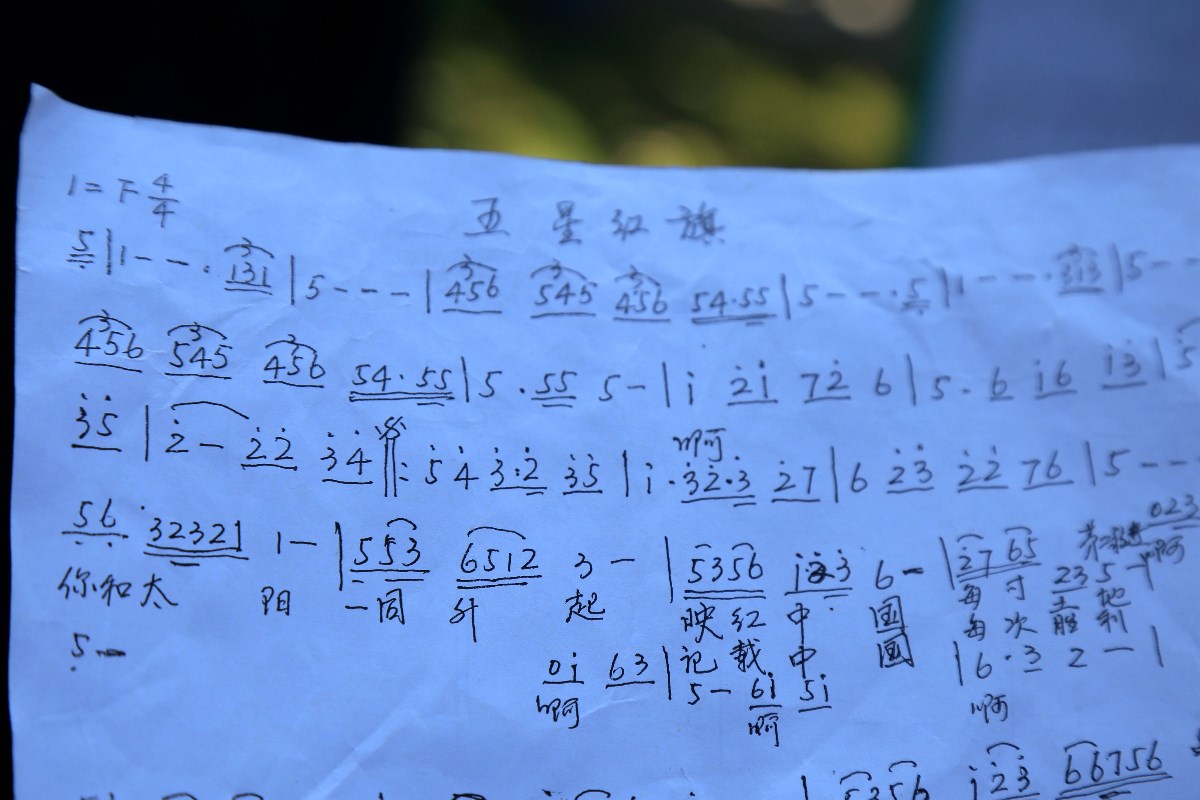 1=F 4/4
五星红旗
5 | 1 - - · 131 | 5 - - - | 456 545 456 54·55 | 5 - - · 5 | 1 - - · 313 | 5 - -
456 545 456 54·55 | 5 · 55 5 - | i 2i 72 6 | 5 · 6 i6 i3 | 5
35 | 2 - 22 34 ‖: 5 4 3·2 35 | i · 32·3 27 | 6 23 22 76 | 5 - - -
啊
56 · 32321 1 - | 553 6512 3 - | 5356 i23 6 - | 27 65 23 5 - | 023
你和太阳一同升起 映红中国 每寸土地 啊
每次胜利
5 -
记载中国
0i 63 | 5 - 6i 5i | 6 · 3 2 - |
啊 啊 啊
5356 i23 66756